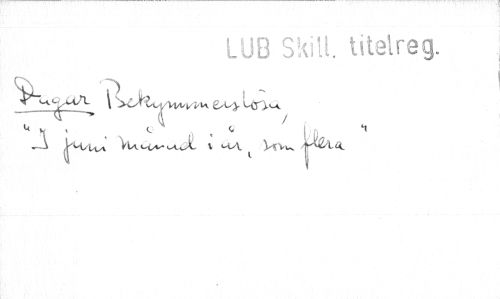 LUB Skill. titelreg.
Dagar Bekymmerslösa,
"I juni månad i år, som flera"